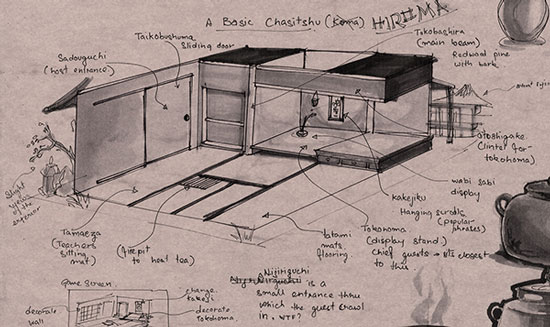 A Basic Chasitshu (Koma) HIROMA
Taikobushuma
Sliding door
Sadouguchi
(host entrance)
Tokobashira
(main beam)
Redwood pine
with bark
otoshigake
(lintel for
tokohoma)
wabi sabi
display
kakejiku
Hanging scrolls
(popular
phrases)
Slight
view
of the
exterior
Tamaeza
(Teachers
sitting
mat)
(fire pit
to heat tea)
tatami
mats
flooring.
Tokonoma
(display stand)
Chief guests sits closest
to this
Nijiriguchi
is a
small entrance thru
which the guest crawl
in. WTF?
Game Screen
decorate
wall
change
kakeji
decorate
tokohoma